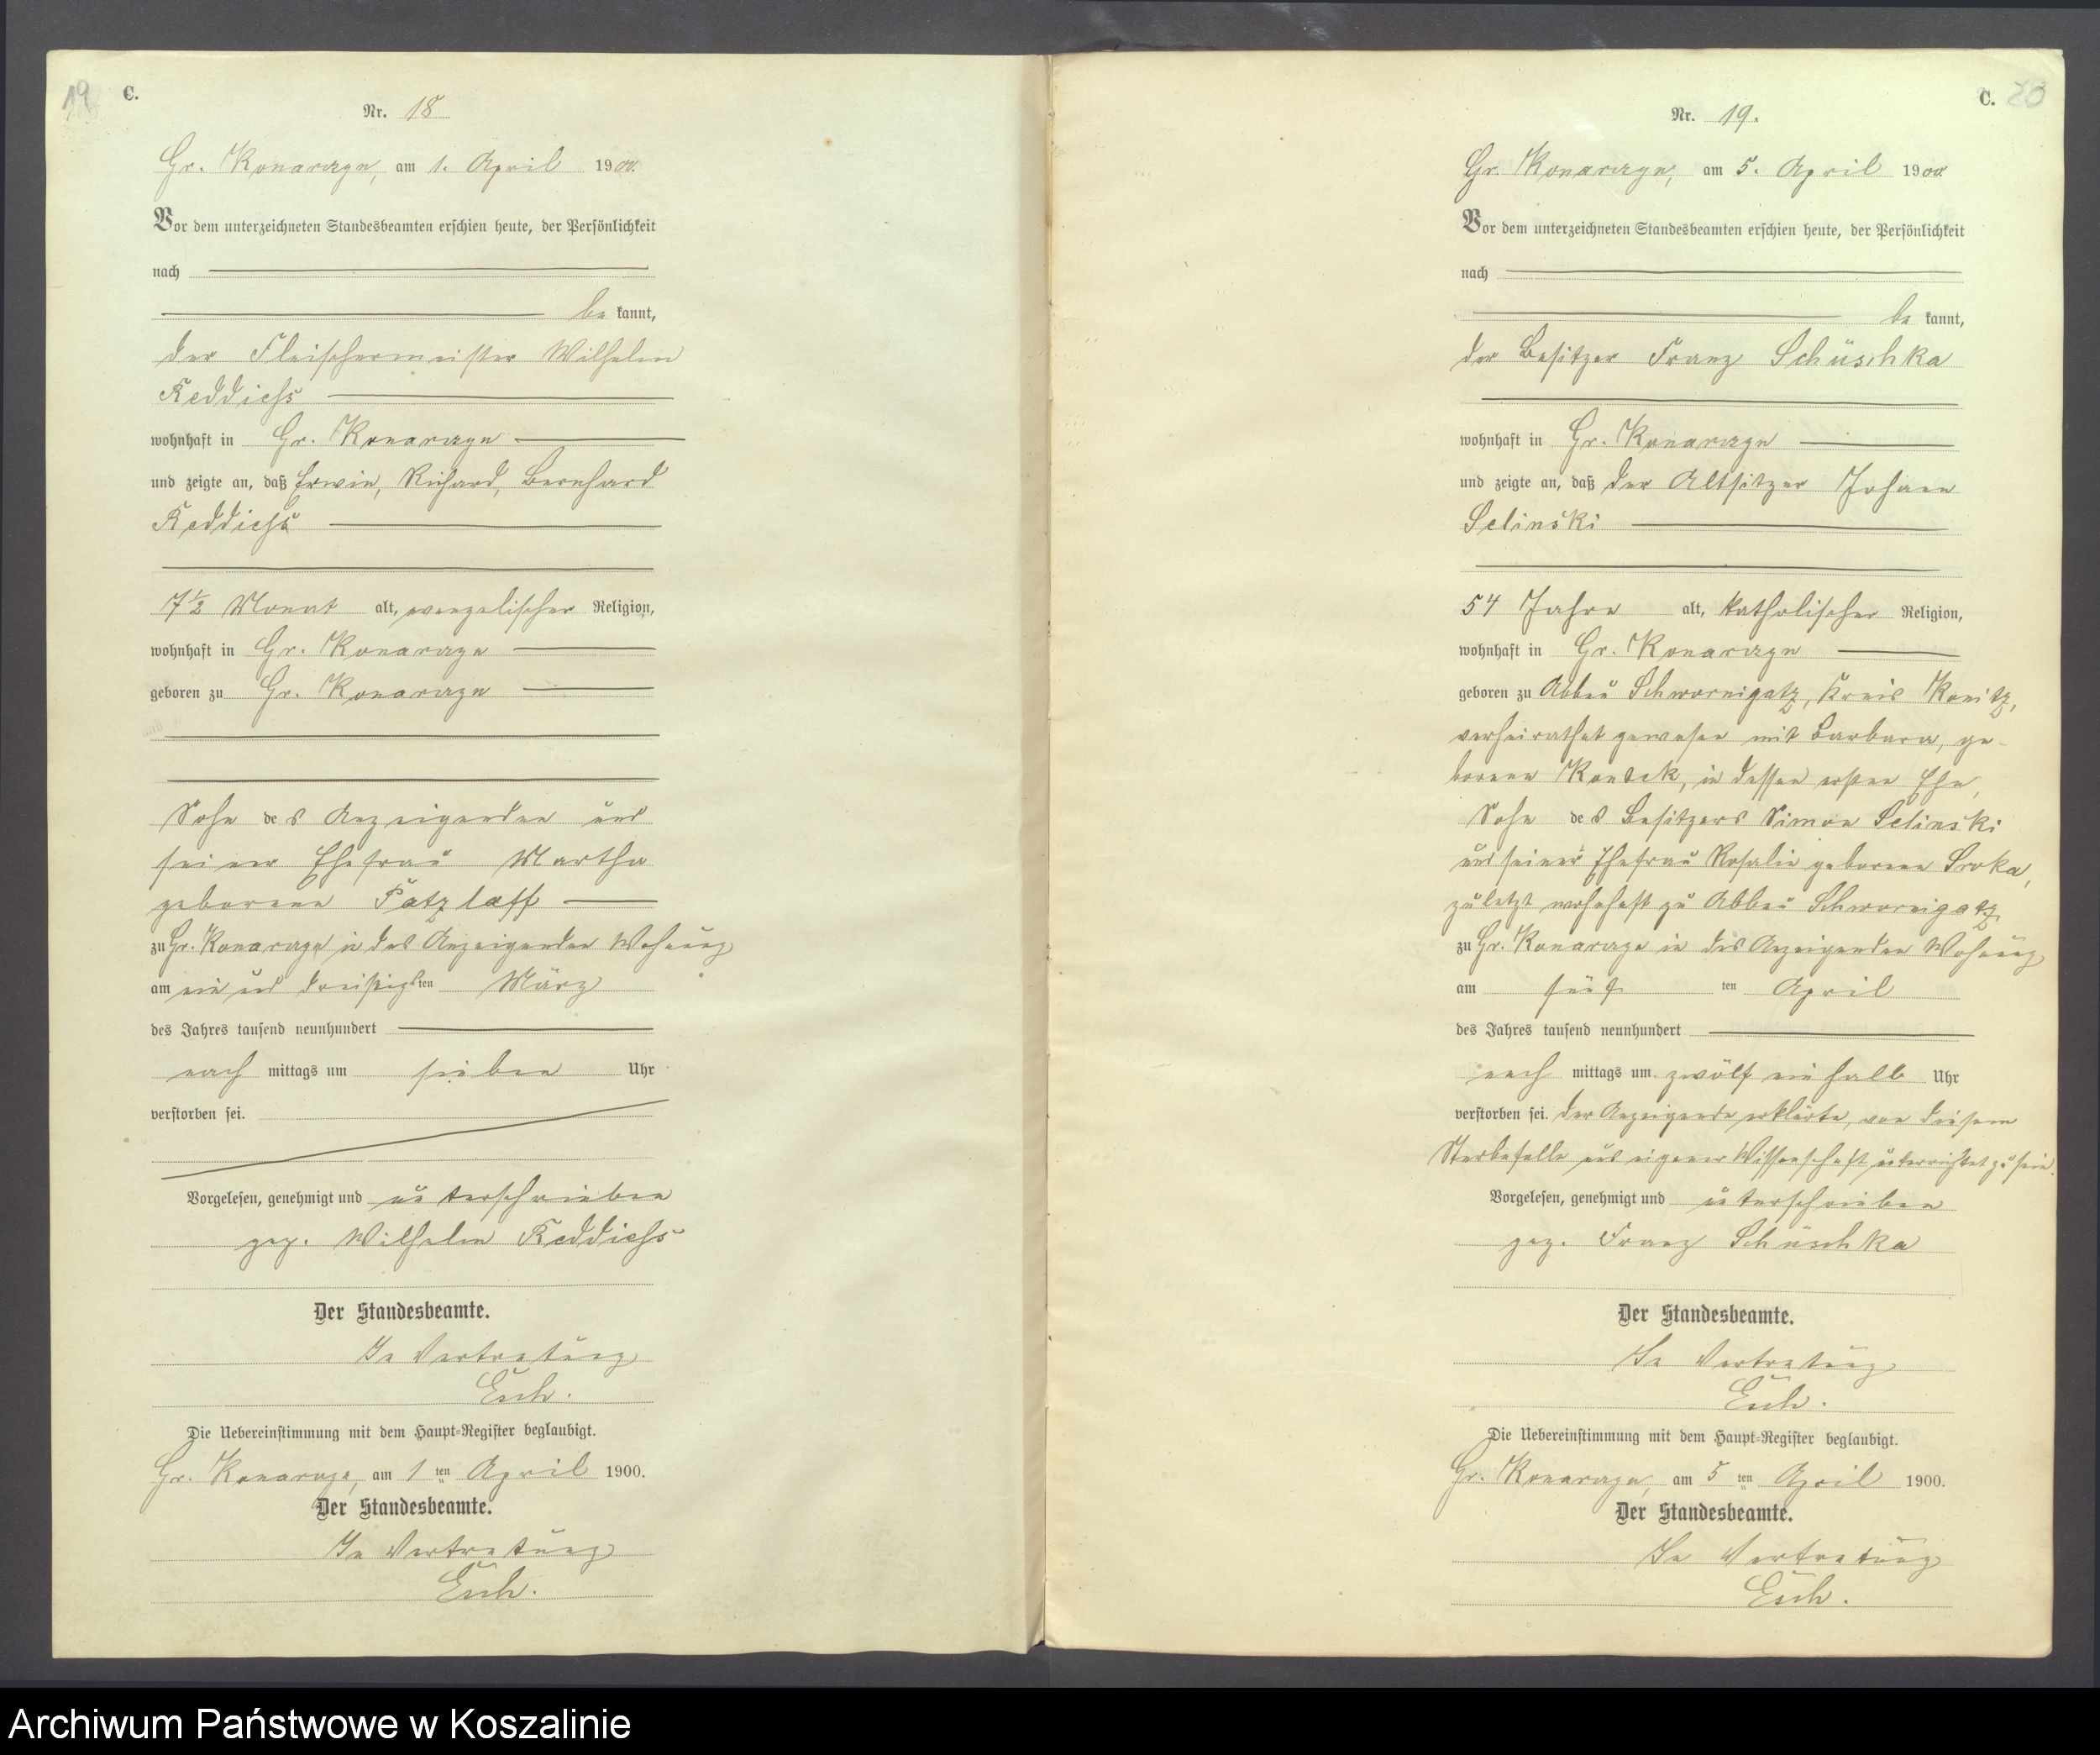 19
C.
Nr. 18
Gr. Konarczyn, am 1. April 1900.
Vor dem unterzeichneten Standesbeamten erschien heute, der Persönlichkeit
nach
be kannt,
der Fleischermeister Wilhelm
Reddiess
wohnhaft in Gr. Konarczyn
und zeigte an, daß Erwin, Richard, Bernhard
7½ Monat alt, evangelischer Religion,
wohnhaft in Gr. Konarczyn
geboren zu Gr. Konarczyn
Sohn des Anzeigenden und
seiner Ehefrau Martha
geborene Patzlaff
zu Gr. Konarczyn in des Anzeigenden Wohnung
am ein und dreißigsten März
des Jahres tausend neunhundert
nach mittags um sieben Uhr
verstorben sei.
Vorgelesen, genehmigt und unterschrieben
gez. Wilhelm
Der Standesbeamte.
In Vertretung
Esch.
Die Uebereinstimmung mit dem Haupt-Register beglaubigt.
Gr. Konarczyn, am 1ten April 1900.
Der Standesbeamte.
In Vertretung
Esch.
C. 20
Nr. 19.
Gr. Konarczyn, am 5. April 1900
Vor dem unterzeichneten Standesbeamten erschien heute, der Persönlichkeit
nach
be kannt,
der Besitzer Franz Schuschka
wohnhaft in Gr. Konarczyn
und zeigte an, daß der Altsitzer Johann
Selinski
54 Jahre alt, katholischer Religion,
wohnhaft in Gr. Konarczyn
geboren zu Abbau Schwornigatz, Kreis Konitz,
verheirathet gewesen mit Barbara, ge-
borene in dessen ersten Ehe,
Sohn des Besitzers Simon Selinski
und seiner Ehefrau Rosalie geborene Sroka,
zuletzt wohnhaft zu Abbau Schwornigatz
zu Gr. Konarczyn in des Anzeigenden Wohnung
am fünften April
des Jahres tausend neunhundert
nach mittags um zwölf ein halb Uhr
verstorben sei. Der Anzeigende erklärte, von diesem
Sterbefalle aus eigener Wissenschaft unterrichtet zu sein.
Vorgelesen, genehmigt und unterschrieben
gez. Franz Schuschka
Der Standesbeamte.
In Vertretung
Esch.
Die Uebereinstimmung mit dem Haupt-Register beglaubigt.
Gr. Konarczyn, am 5ten April 1900.
Der Standesbeamte.
In Vertretung
Esch.
Archiwum Państwowe w Koszalinie